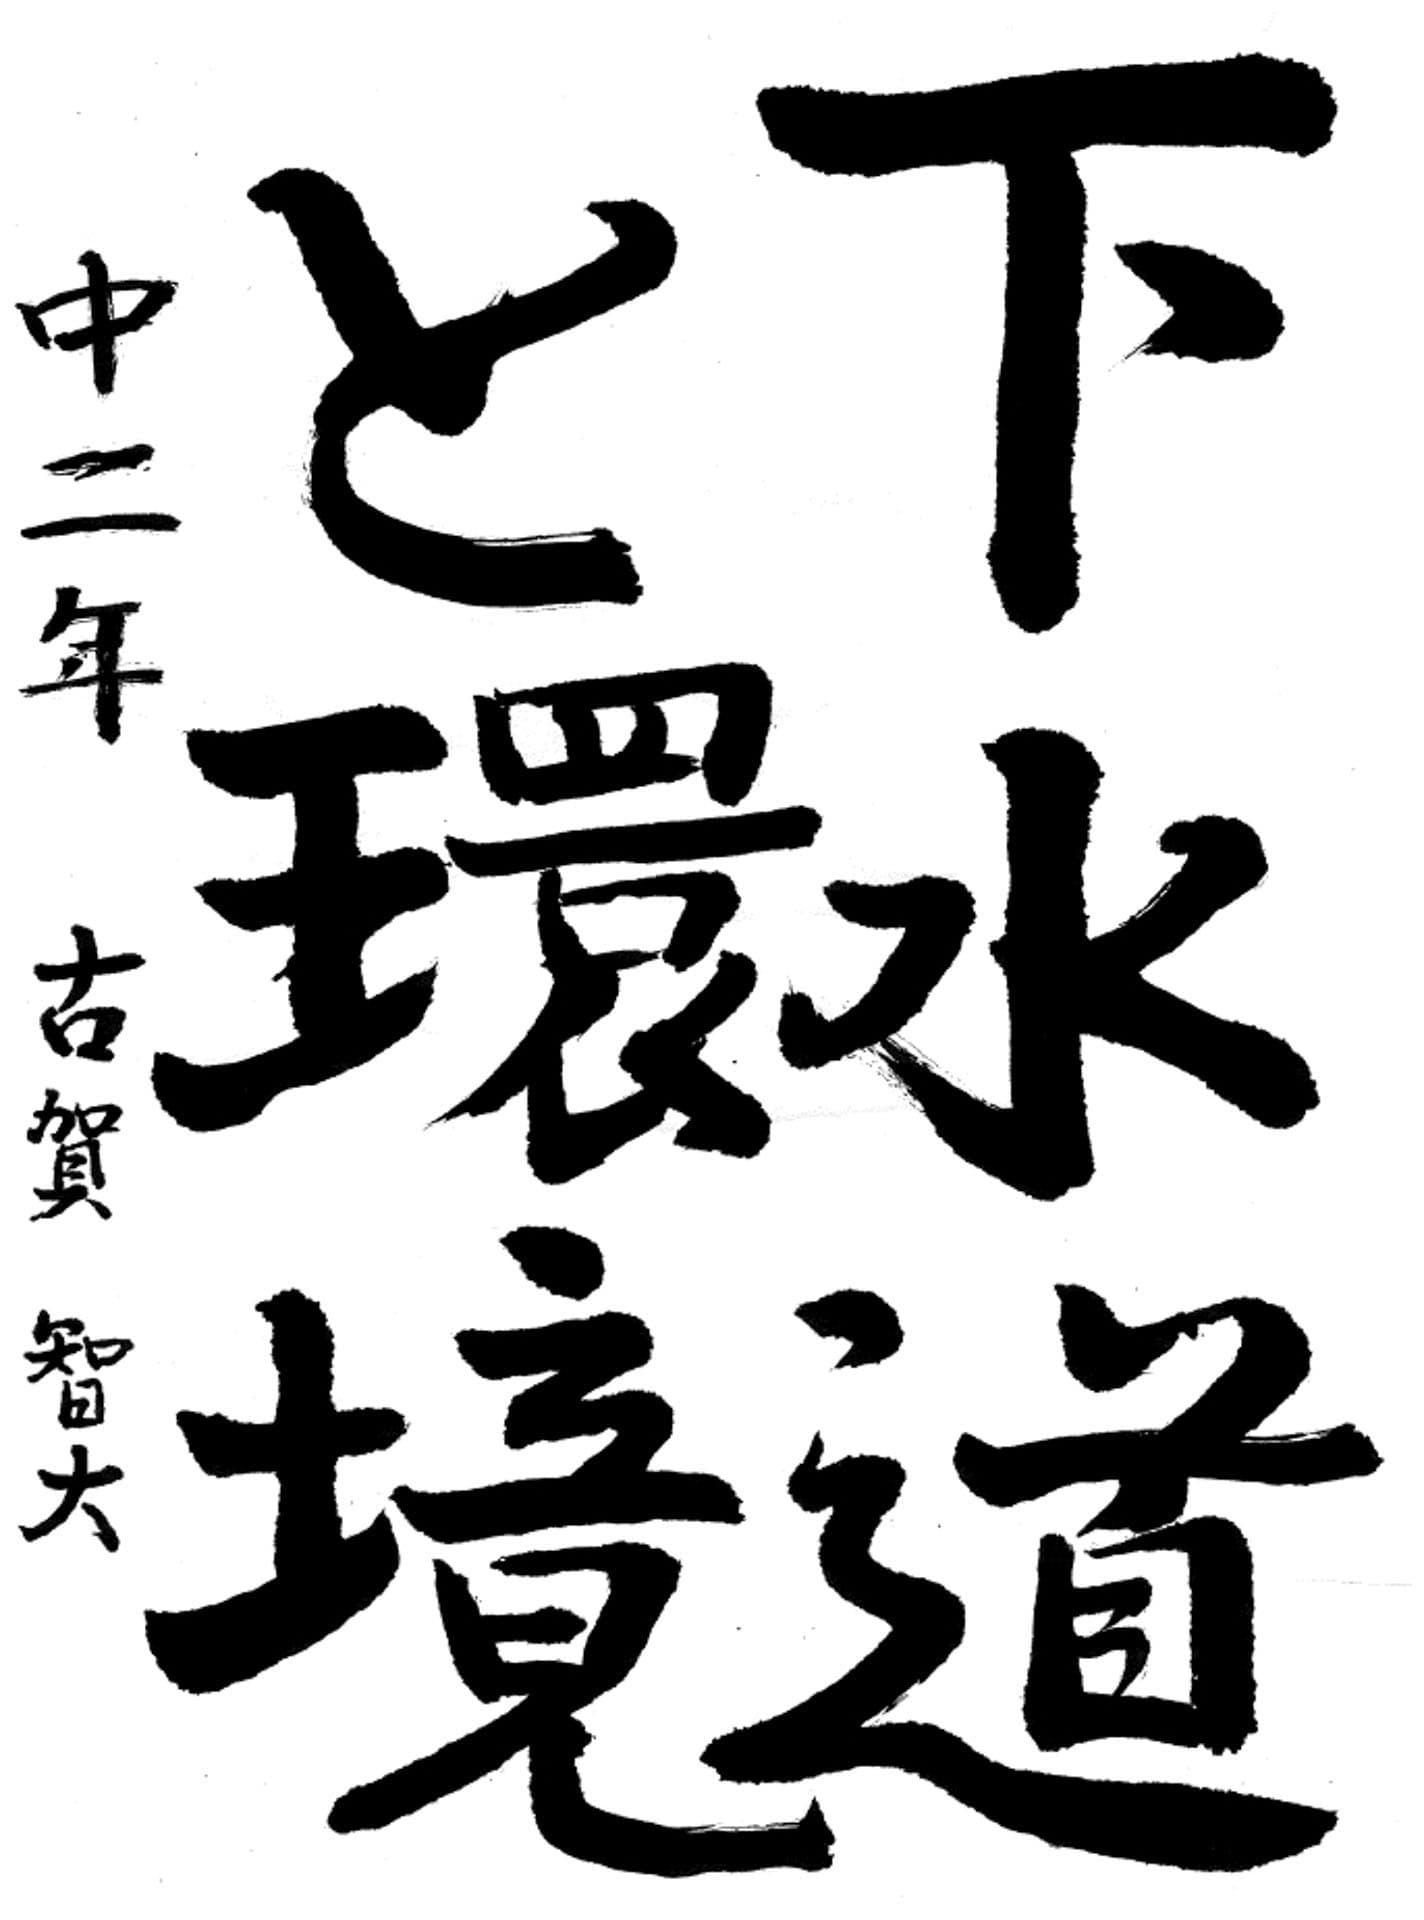 下水道
と環境
中二年 古賀智大